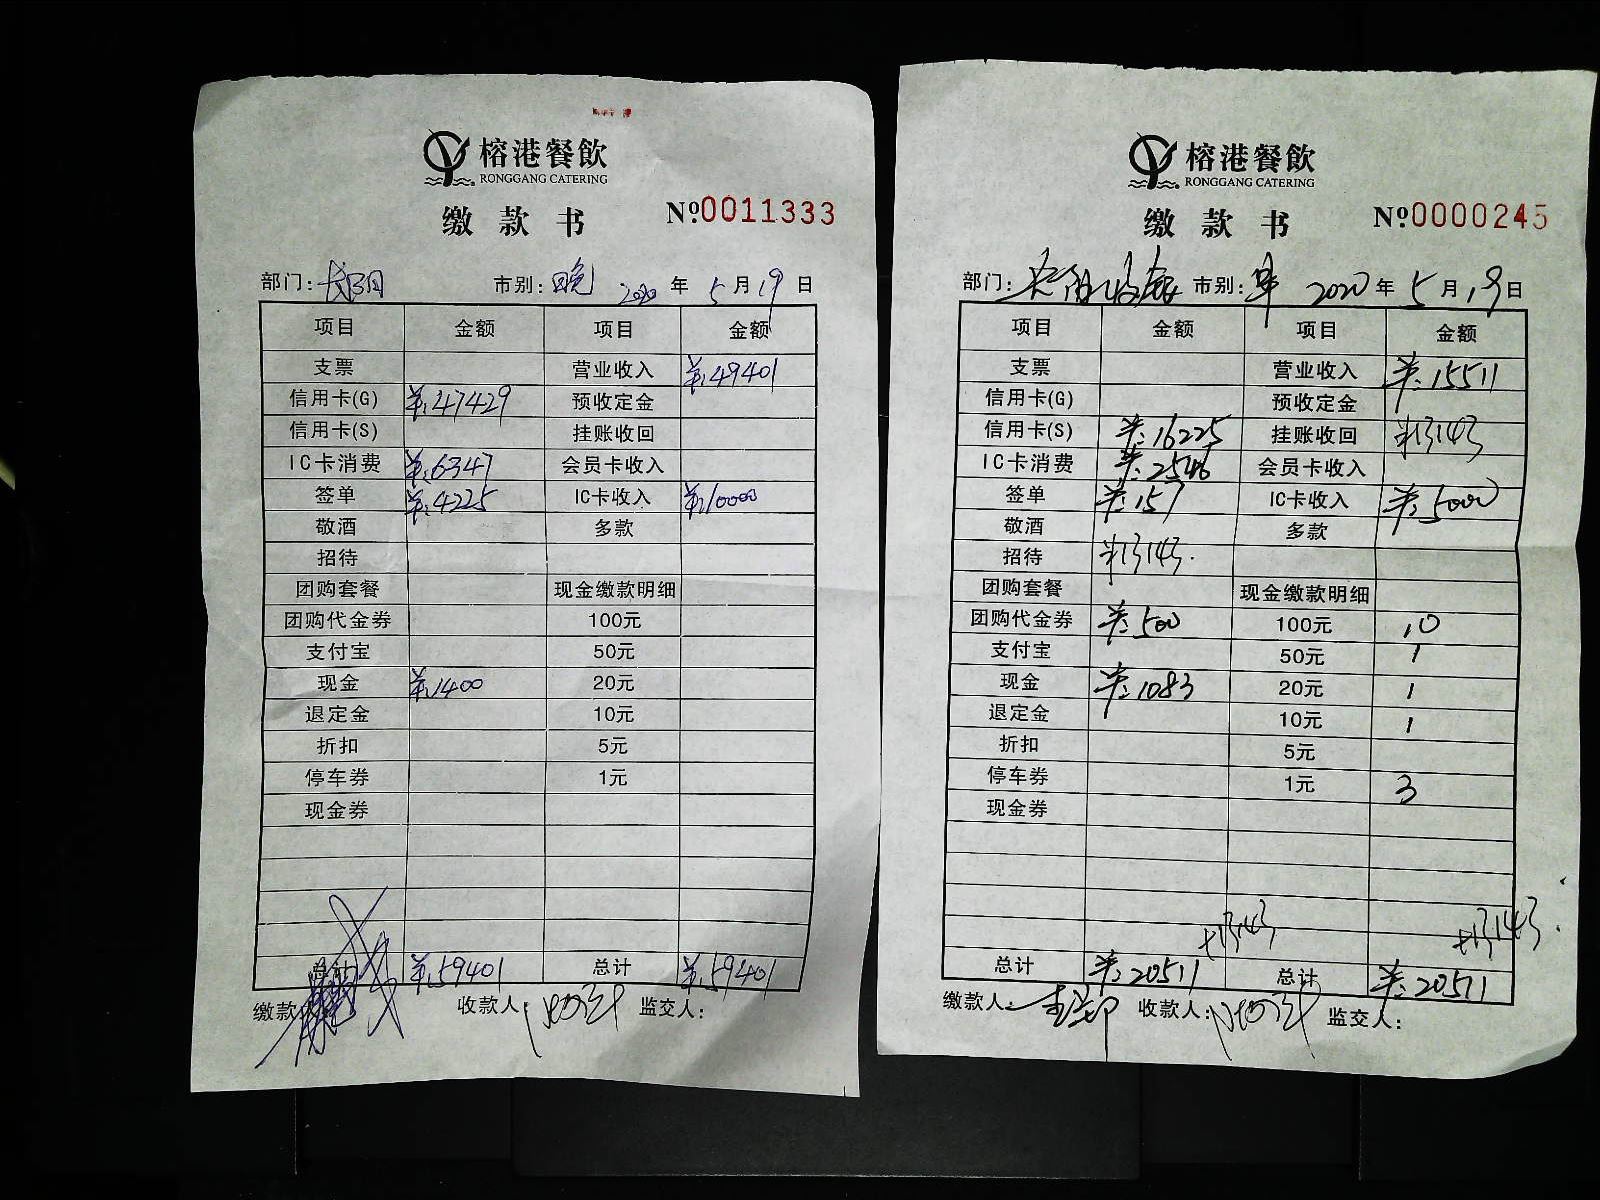 榕港餐飲
RONGGANG CATERING
缴款书 №0011333
部门: 市别: 晚 2020 年 5 月 19 日
项目 金额 项目 金额
支票 营业收入 ¥:49401
信用卡(G) ¥:47429 预收定金
信用卡(S) 挂账收回
IC卡消费 ¥:6347 会员卡收入
签单 ¥:4225 IC卡收入 ¥:10000
敬酒 多款
招待
团购套餐 现金缴款明细
团购代金券 100元
支付宝 50元
现金 ¥:1400 20元
退定金 10元
折扣 5元
停车券 1元
现金券
总计 ¥:59401 总计 ¥:59401
缴款人: 收款人: 监交人:
榕港餐飲
RONGGANG CATERING
缴款书 №0000245
部门: 市别: 早 2020 年 5 月 19 日
项目 金额 项目 金额
支票 营业收入 ¥:15511
信用卡(G) 预收定金
信用卡(S) ¥:16225 挂账收回 ¥13143
IC卡消费 ¥:2546 会员卡收入
签单 ¥:157 IC卡收入 ¥:5000
敬酒 多款
招待 ¥13143.
团购套餐 现金缴款明细
团购代金券 ¥:500 100元 10
支付宝 50元 1
现金 ¥:1083 20元 1
退定金 10元 1
折扣 5元
停车券 1元 3
现金券
+13143 +13143.
总计 ¥:20511 总计 ¥:20511
缴款人: 收款人: 监交人: